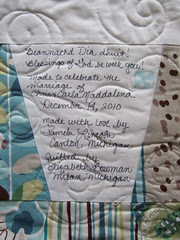 Beannachd Dia dhuit!
Blessings of God be with you!
Made to celebrate the
marriage of
Carla Maddalena
December 14, 2010
Made with love by
Pamela
Canton, Michigan
Quilted by
Elizabeth Bowman
Milan, Michigan